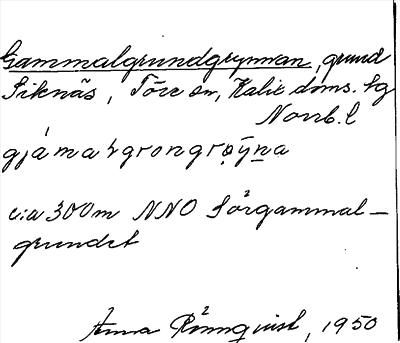 Gammalgrundgrynnan, grund
Siknäs, Töre sn, Kalix doms. hg
Norrb. l
c:a 300 m NNO Sörgammal-
grundet
Anna Rönnqvist, 1950